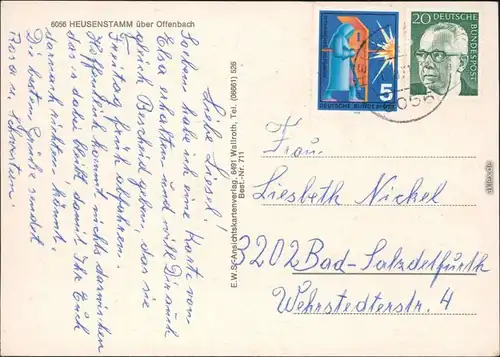 6056 HEUSENSTAMM über Offenbach
Liebe Liesel!
Soeben habe ich eine Karte von
Elsa erhalten und will Dir auch
gleich Bescheid geben, das sie
Freitag früh abfahren.
Hoffentlich kommt nichts dazwischen
das es dabei bleibt damit Ihr Euch
danach richten könnt.
Die besten Grüße sendet
Rosa u.
E.W.S.-Ansichtskartenverlag, 6491 Wallroth, Tel. (06661) 526
Best.-Nr. 711
5
DEUTSCHE BUNDESPOST
20 DEUTSCHE
BUNDESPOST
6056
Frau
Liesbeth Nickel
3202 Bad-Salzdetfurth
Wehrstedterstr. 4